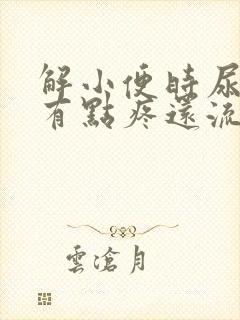 解小便時尿
有點疼還流
雲滄月